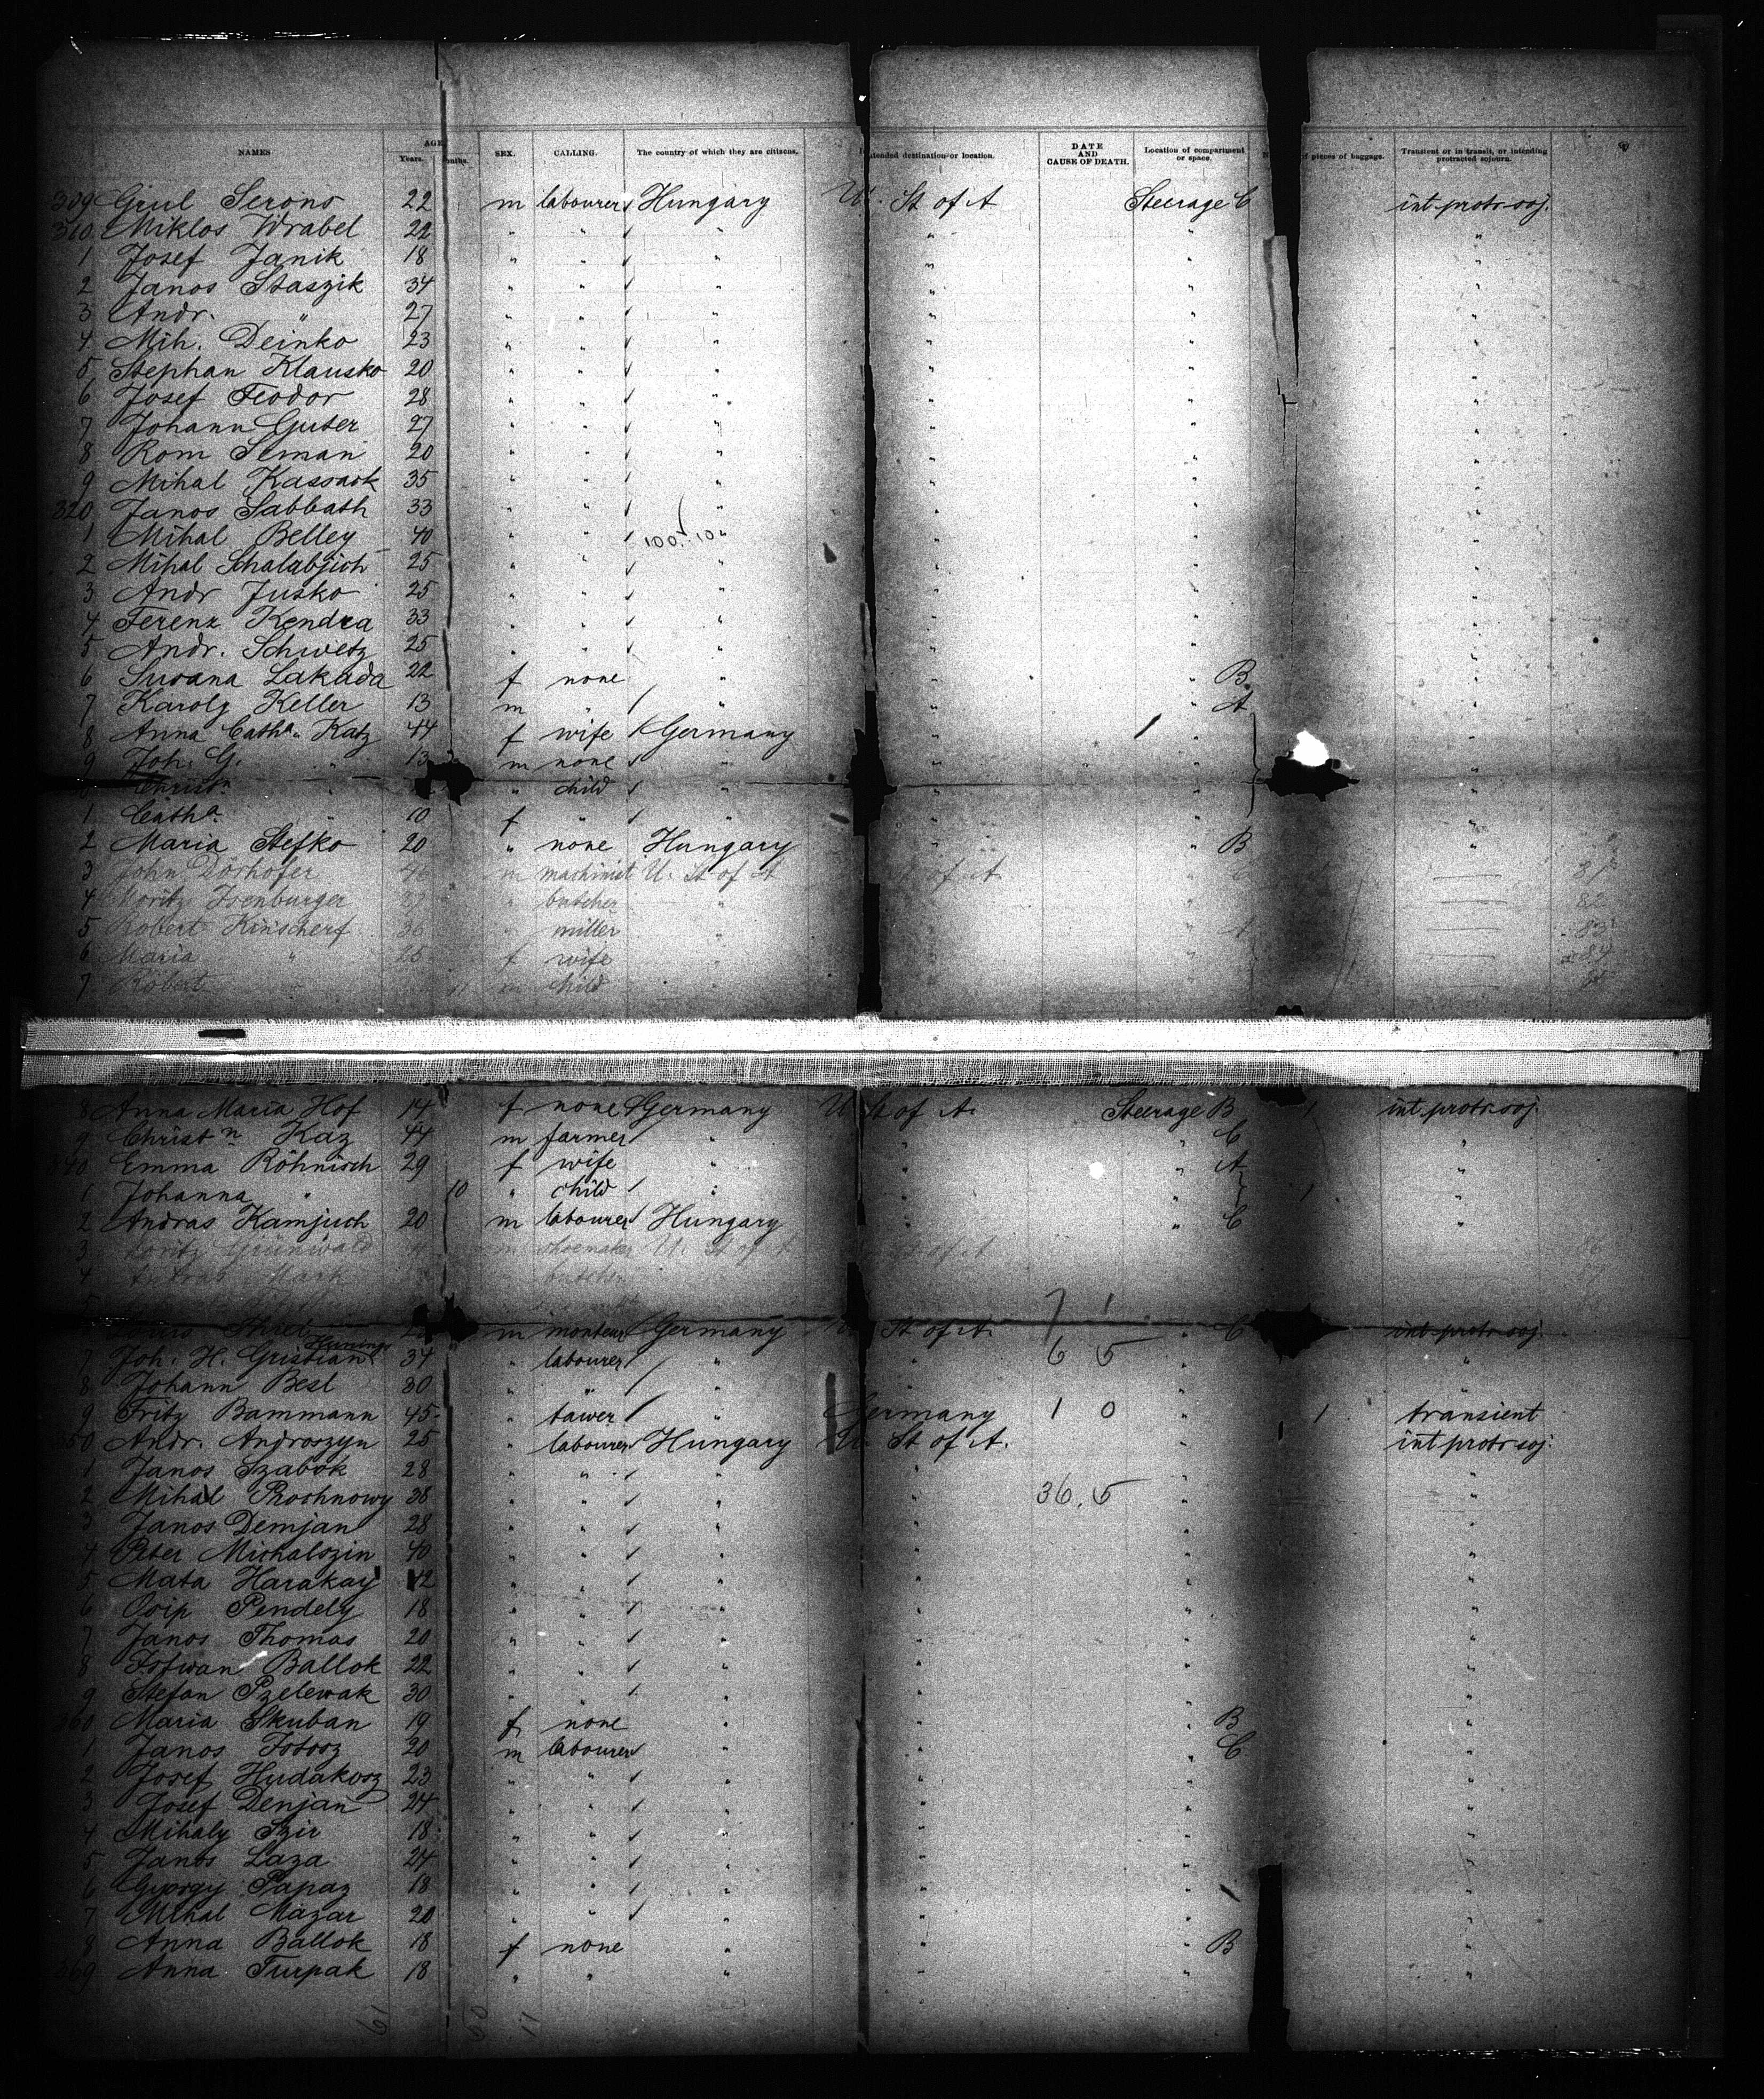 NAMES AGE Years. SEX. CALLING. The country of which they are citizens. Intended destination or location. DATE AND CAUSE OF DEATH. Location of compartment or space. of pieces of baggage. Transient or in transit, or intending protracted sojourn.
309 Grul Serons 22 m labourer Hungary U. St of A Steerage C int protr soj.
310 Miklos Wrabel 22 " " " " " "
1 Josef Janik 18 " " " " " "
2 Janos Staszik 34 " " " " " "
3 Andr. " 27 " " " " " "
4 Mih. Deinko 23 " " " " " "
5 Stephan Klausko 20 " " " " " "
6 Josef Feodor 28 " " " " " "
7 Johann Guter 27 " " " " " "
8 Rom Seman 20 " " " " " "
9 Mihal Kassack 35 " " " " " "
320 Janos Sabbath 33 " " " " " "
1 Mihal Belley 40 " " " " " "
2 Mihal Schalabjich 25 " " " " " "
3 Andr Jusko 25 " " " " " "
4 Ferenz Kendra 33 " " " " " "
5 Andr. Schwetz 25 " " " " " "
6 Susana Lakada 22 f none " " " B "
7 Karoly Keller 13 m " " " " A "
8 Anna Cath a. Katz 44 f wife Germany " " "
9 Joh. G. " 13 m none " " " "
Christ n " " child " " " "
1 Cath a. " 10 f " " " " "
2 Maria Stefko 20 " none Hungary " " B "
3 John Dörhofer 46 m machinist U. St of A St of A 81
4 Moritz Isenburger 27 " butcher " 82
5 Robert Kinscherf 36 " miller " A 83
6 Maria " 25 f wife " 84
7 Robert " 11 m child "
8 Anna Maria Hof 14 f none Germany U. St of A. Steerage B 1 int protr soj.
9 Christ n Kaz 44 m farmer " " " C "
340 Emma Röhnisch 29 f wife " " " A "
1 Johanna " 10 " child " " " 1 "
2 Andras Kamjuch 20 m labourer Hungary " " C "
3 Moritz Grünwald m shoemaker U. St of A St of A 86
4 Andras Mark " butcher 87
m monteur Germany St of A. 7 1 " C int protr soj.
7 Joh. H. Gristian 34 " labourer " " 6 5 " "
8 Johann Besl 30 " " " " " "
9 Fritz Bammann 45 " tawer " Germany 1 0 " 1 transient
350 Andr. Androszyn 25 " labourer Hungary U. St of A. " int protr soj.
1 Janos Szabok 28 " " " " " "
2 Mihal Prochnowy 38 " " " " 36.5 " "
3 Janos Demjan 28 " " " " " "
4 Peter Michalszin 40 " " " " " "
5 Mata Harakay 42 " " " " " "
6 Osip Pendely 18 " " " " " "
7 Janos Thomas 20 " " " " " "
8 Istwan Ballok 22 " " " " " "
9 Stefan Pzelewak 30 " " " " " "
360 Maria Skuban 19 f none " " " B "
1 Janos Fotosz 20 m labourer " " " C "
2 Josef Hudakosz 23 " " " " " "
3 Josef Denjan 24 " " " " " "
4 Mihaly Szir 18 " " " " " "
5 Janos Laza 24 " " " " " "
6 Gyorgy Papaz 18 " " " " " "
7 Mihal Mazar 20 " " " " " "
8 Anna Ballok 18 f none " " " B "
369 Anna Turpak 18 " " " " " "
61 50 11